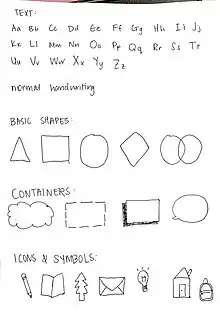 TEXT:
Aa Bb Cc Dd Ee Ff Gg Hh Ii Jj
Kk Ll Mm Nn Oo Pp Qq Rr Ss Tt
Uu Vv Ww Xx Yy Zz
normal handwriting
BASIC SHAPES:
CONTAINERS:
ICONS & SYMBOLS: